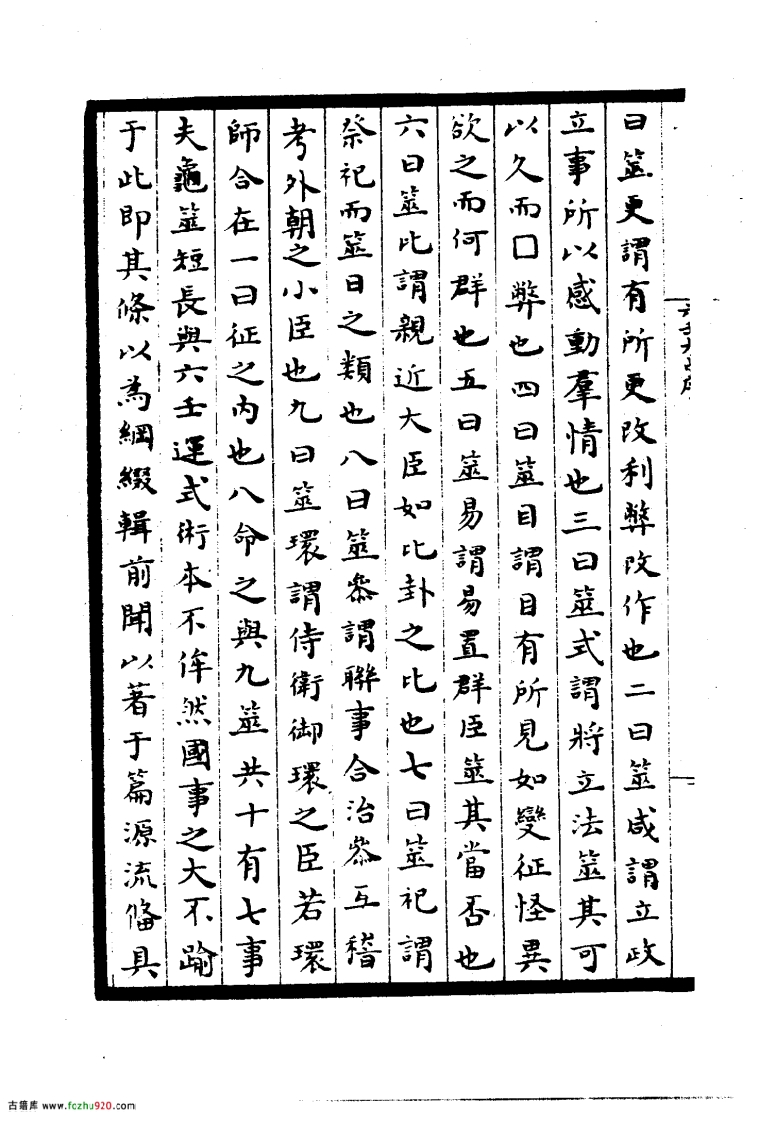 曰筮更謂有所更改利弊改作也二曰筮咸謂立政
立事所以感動羣情也三曰筮式謂將立法筮其可
以久而口弊也四曰筮目謂目有所見如變征怪異
欲之而何群也五曰筮易謂易置群臣筮其當否也
六曰筮比謂親近大臣如比卦之比也七曰筮祀謂
祭祀而筮日之類也八曰筮叅謂聯事合治叅互稽
考外朝之小臣也九曰筮環謂侍衛御環之臣若環
師合在一曰征之內也八命之與九筮共十有七事
夫龜筮短長與六壬運式術本不侔然國事之大不踰
于此即其條以為綱綴輯前聞以著于篇源流俻具
古籍库 www.fczhu920.com